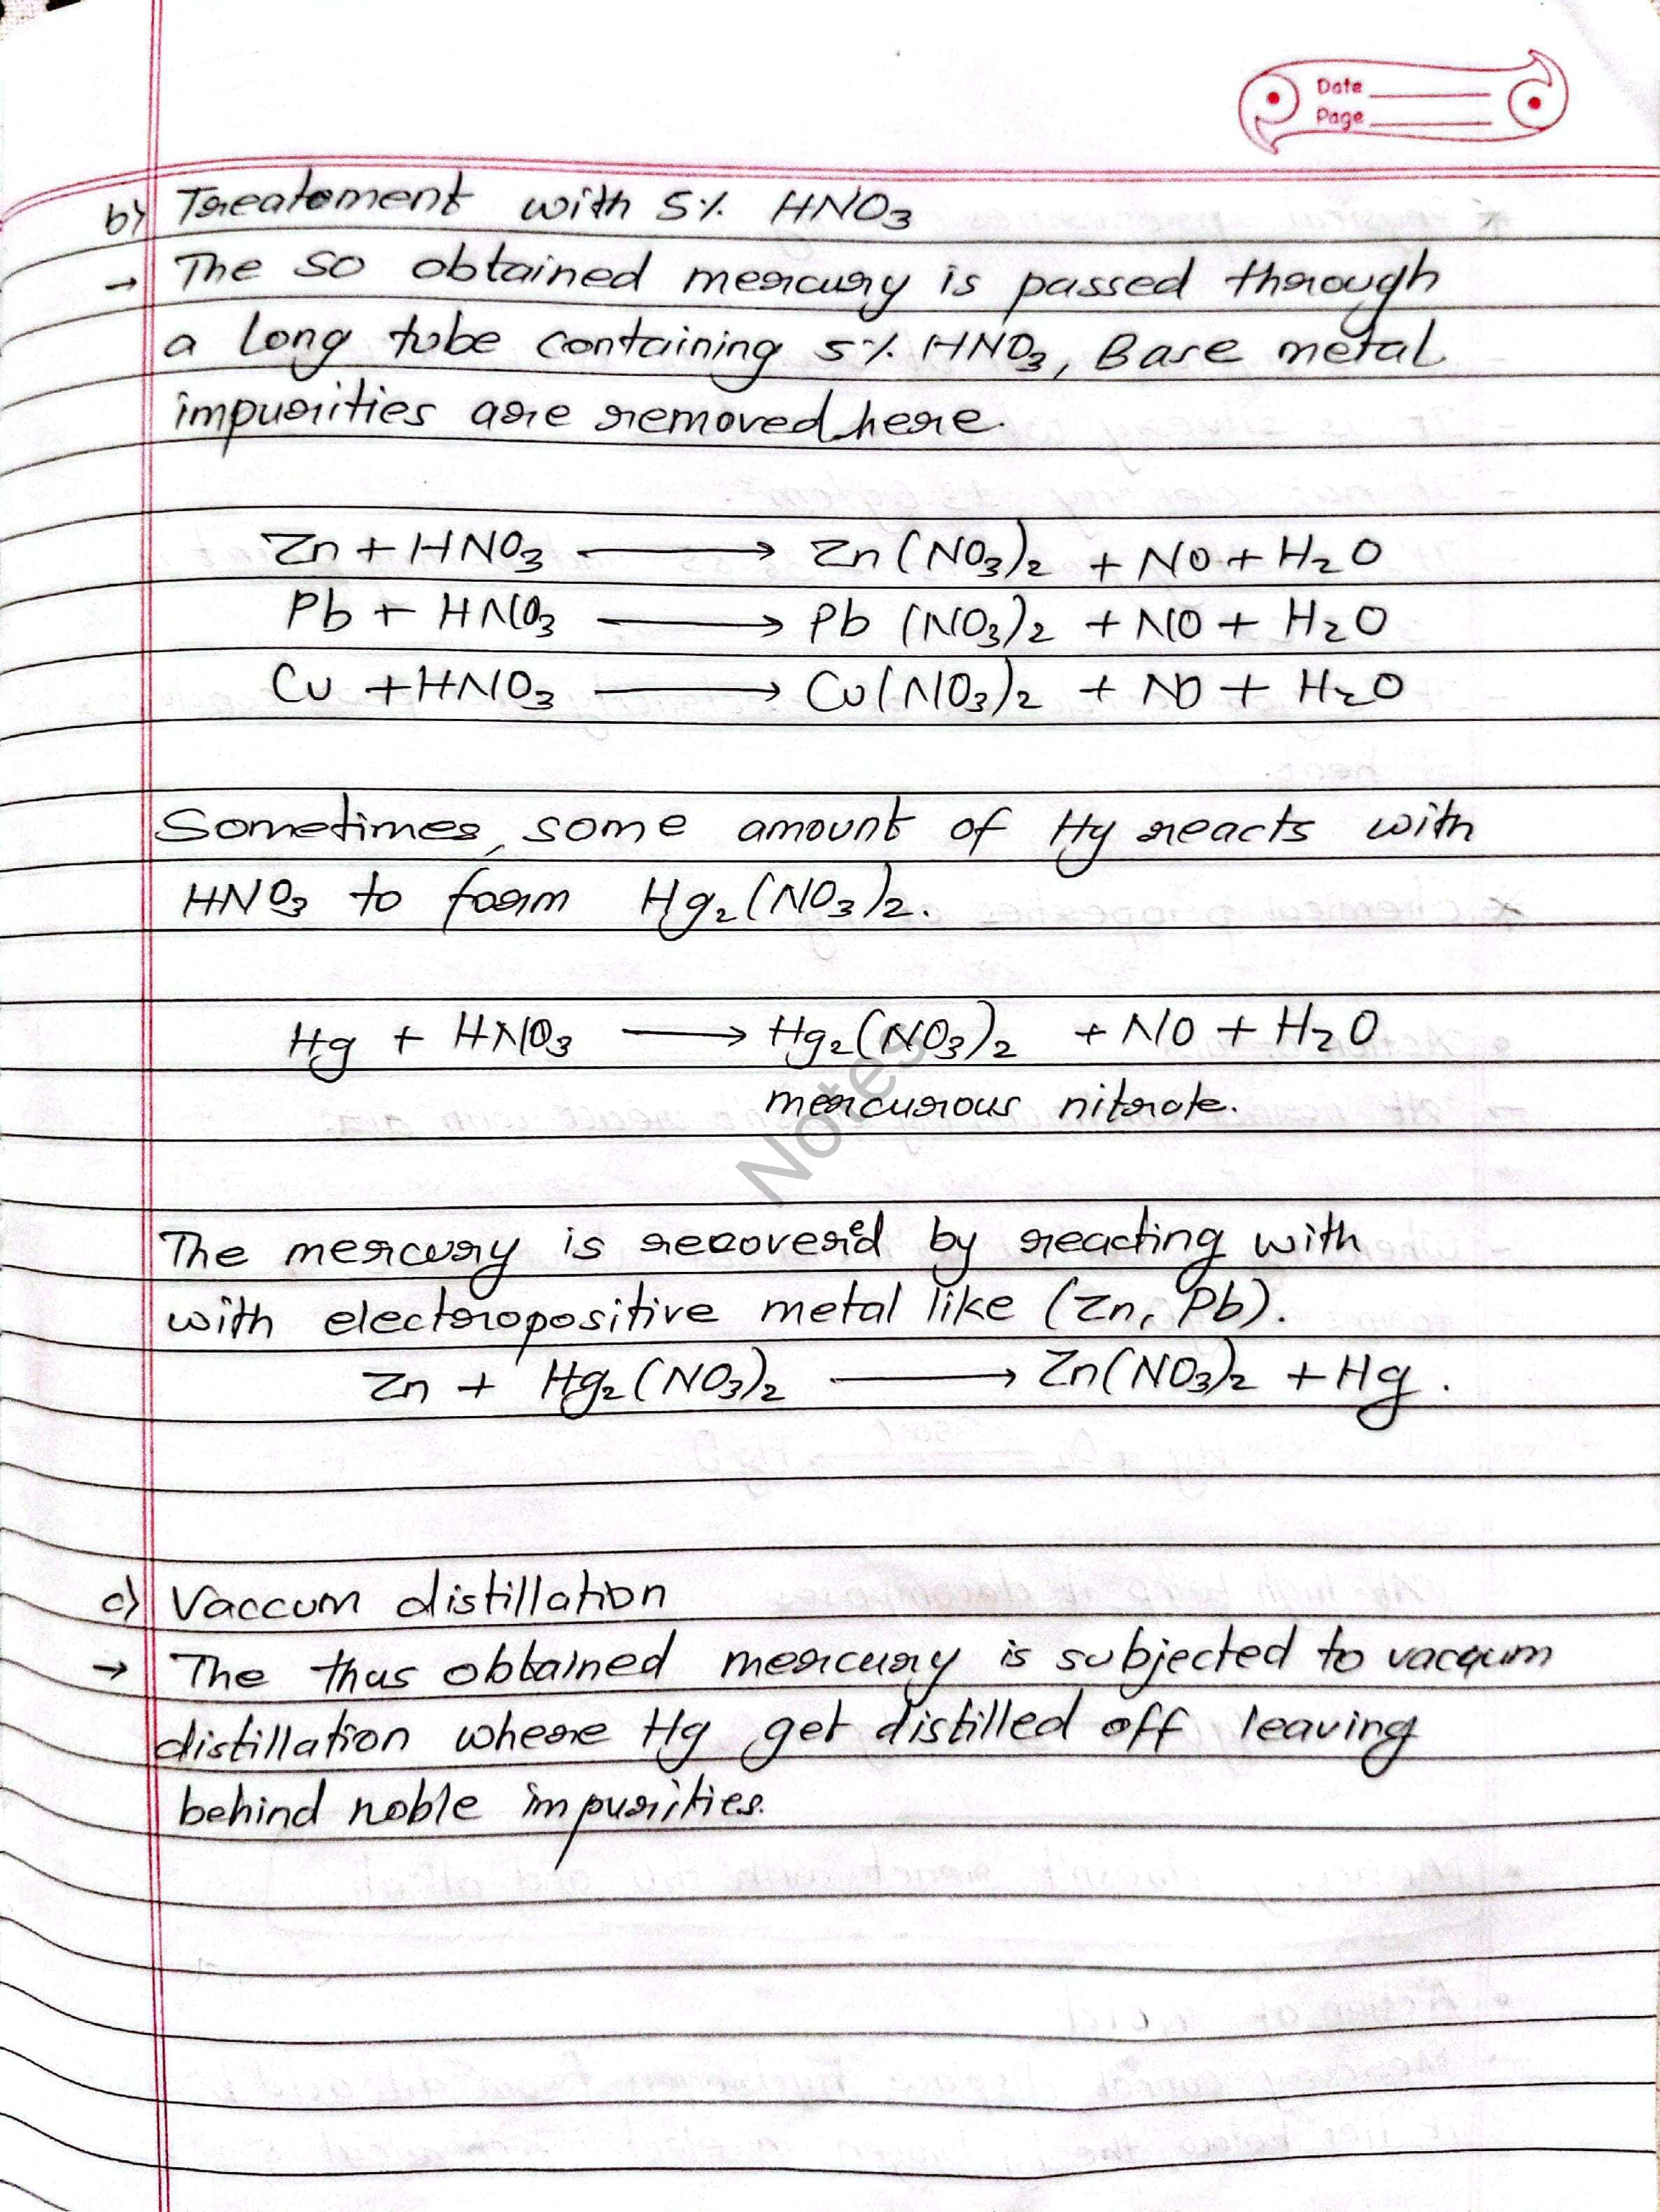 Date
Page
b) Treatement with 5% HNO3
→ The so obtained mercury is passed through
a long tube containing 5% HNO3, Base metal
impurities are removed here.
Zn + HNO3 ⟶ Zn(NO3)2 + NO + H2O
Pb + HNO3 ⟶ Pb (NO3)2 + NO + H2O
Cu + HNO3 ⟶ Cu(NO3)2 + NO + H2O
Sometimes, some amount of Hg reacts with
HNO3 to form Hg2(NO3)2.
Hg + HNO3 ⟶ Hg2(NO3)2 + NO + H2O
mercurous nitrate.
Notes
The mercury is recovered by reacting with
with electropositive metal like (Zn, Pb).
Zn + Hg2(NO3)2 ⟶ Zn(NO3)2 + Hg.
c) Vaccum distillation
→ The thus obtained mercury is subjected to vacuum
distillation where Hg get distilled off leaving
behind noble impurities.